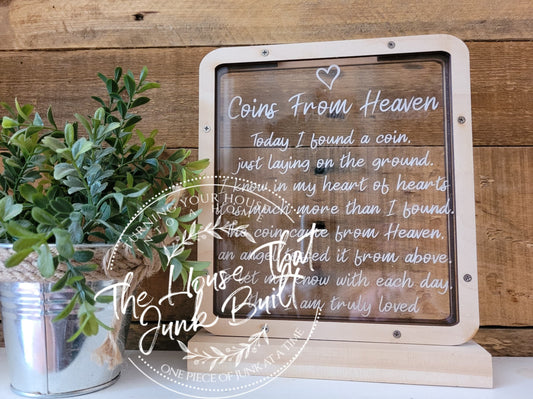 Coins From Heaven
Today I found a coin,
just laying on the ground.
know in my heart of hearts
much more than I found.
coin came from Heaven,
an angel it from above.
let me know with each day.
am truly loved
TURNING YOUR HOUSE
The House That
Junk Built
ONE PIECE OF JUNK AT A TIME